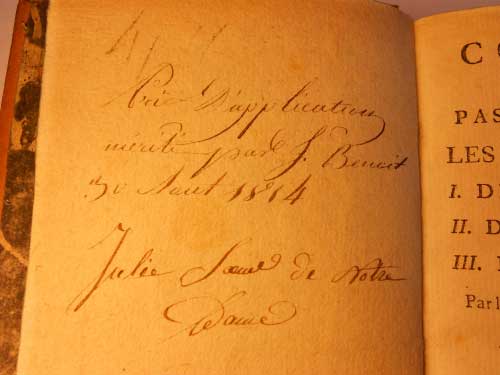 Prix D'application
mérité par S. Benoit
30 Aout 1814
Julie Sœur de Notre
Dame
C
PAS
LES
I. D
II. D
III.
Par l